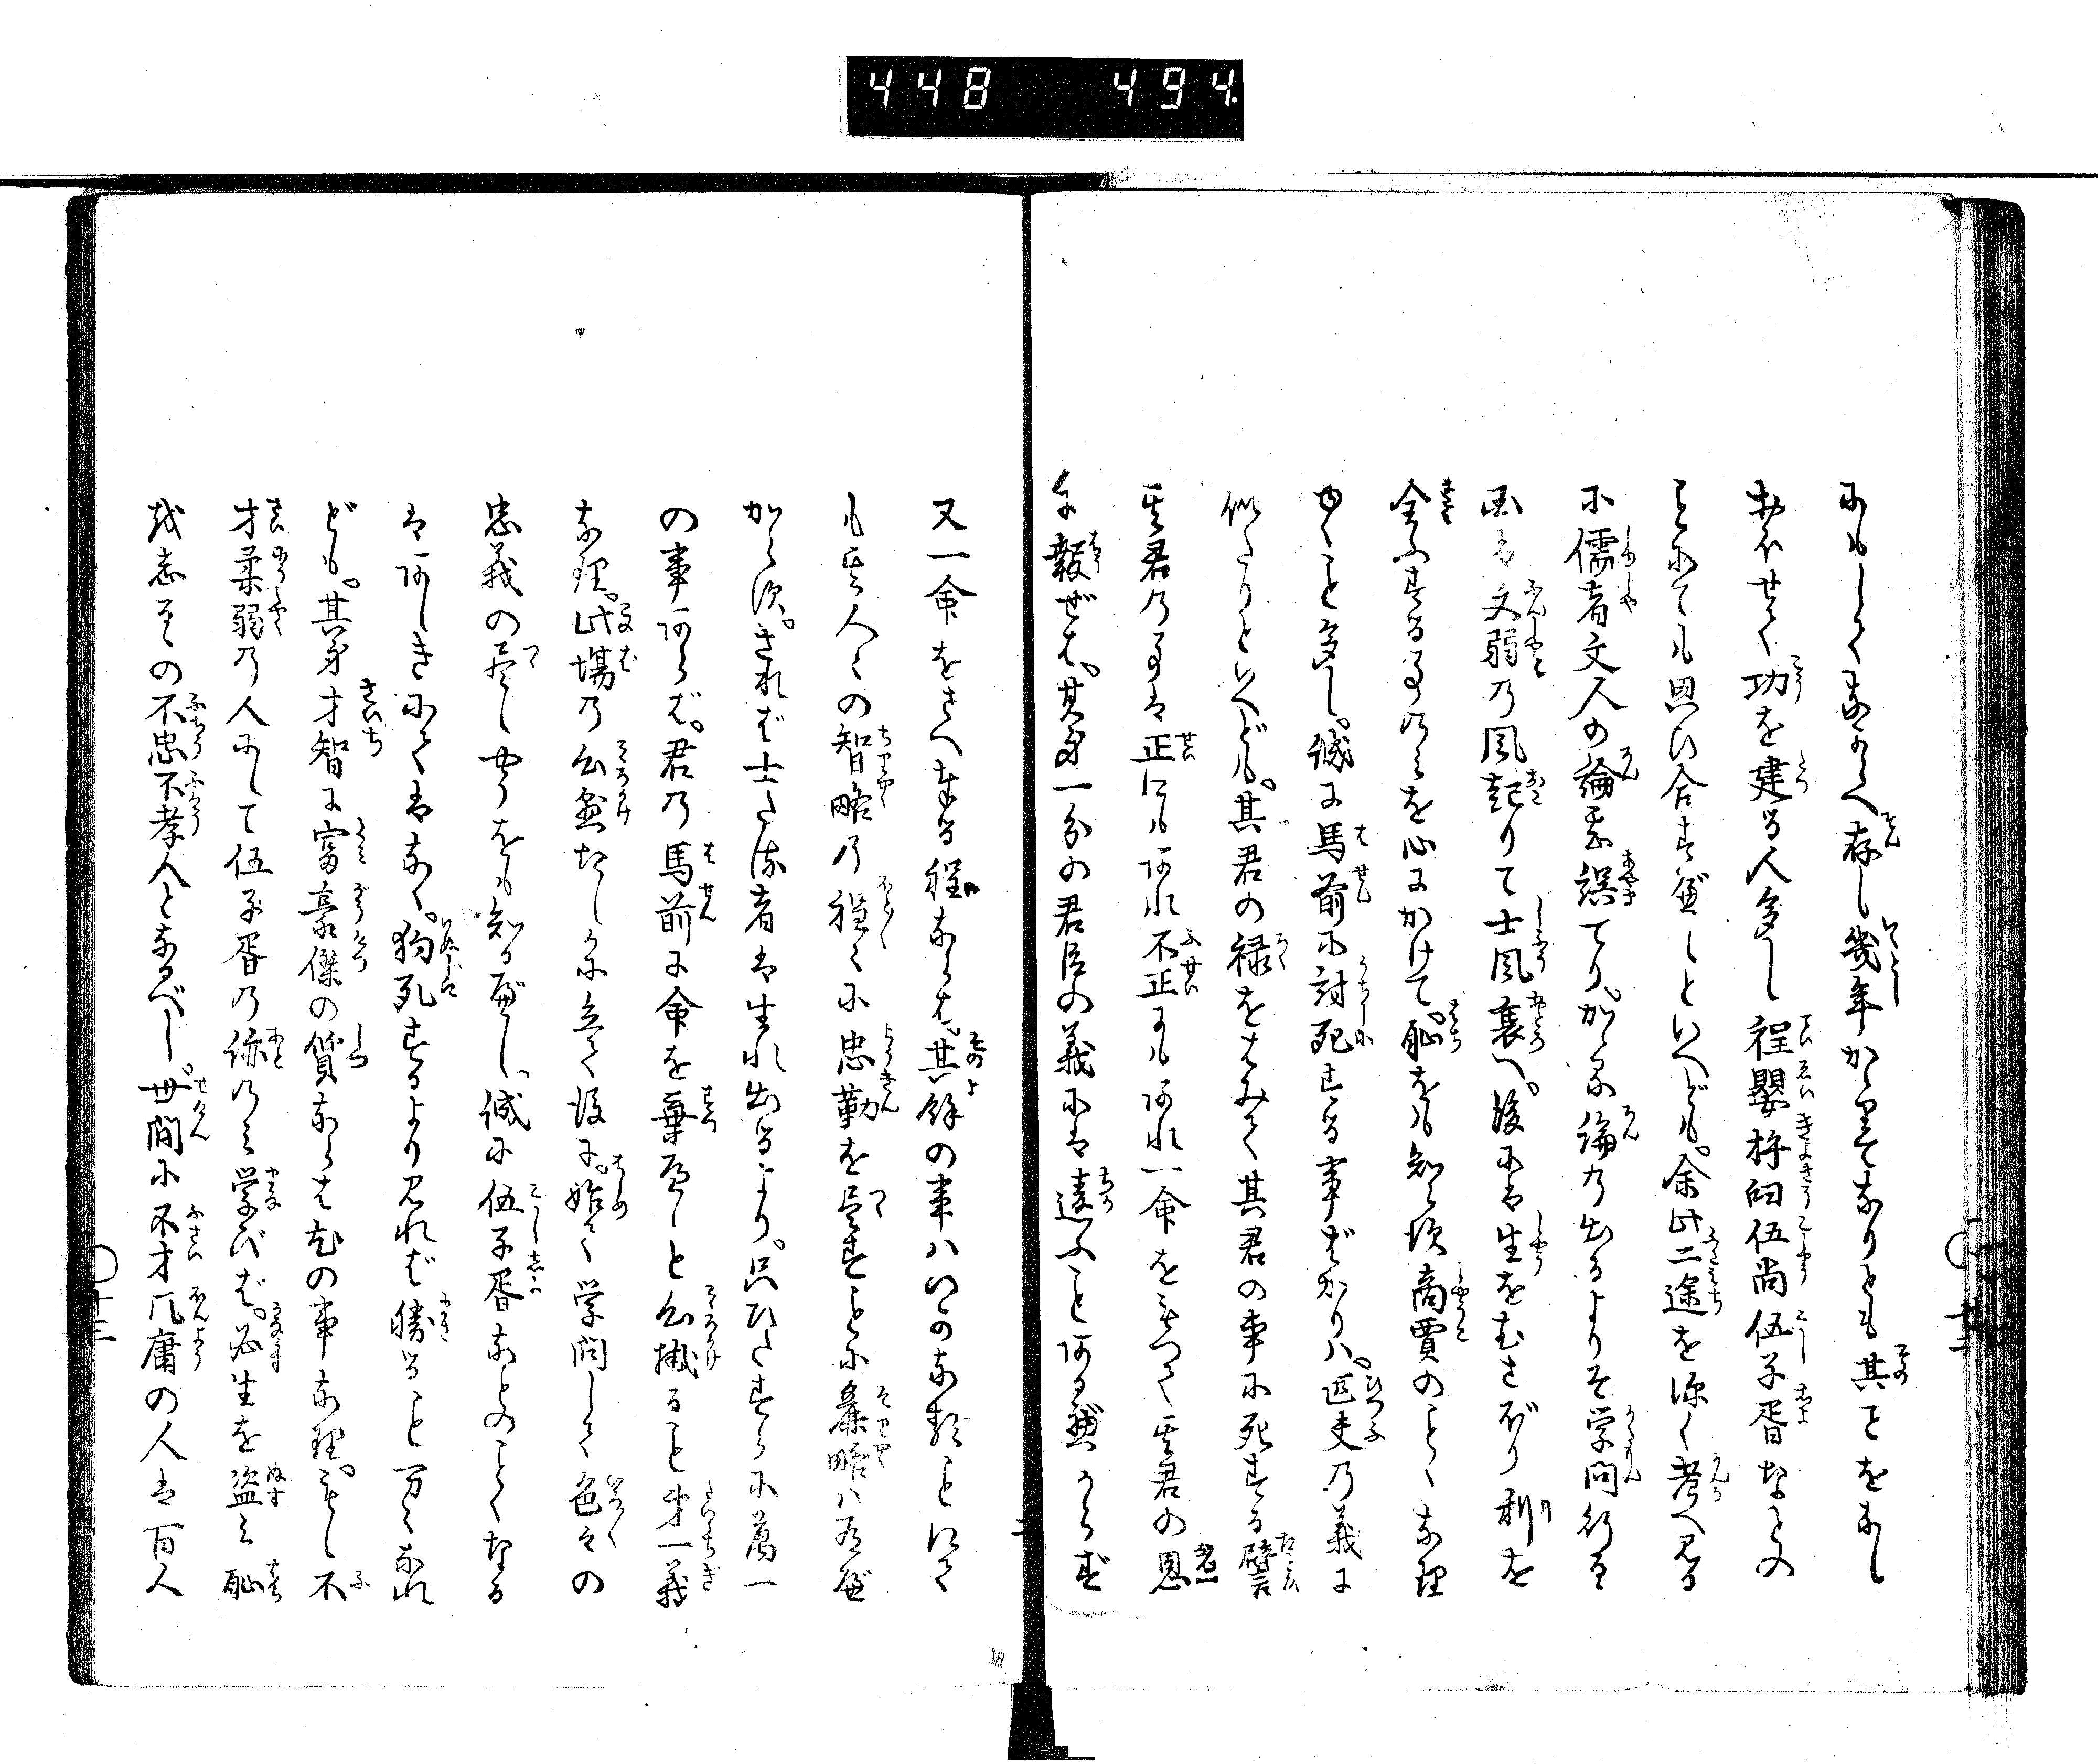 448 494.
にもしくまじへ存し幾年かゝるとも其ことをなし
おほせて功を建る人多し程嬰杵臼伍尚伍子胥などの
ことにても思ひ合す可しといへども。余此二途を深く考へ見る
に儒者文人の論甚誤てり。かゝる論の出るよりそ学問行るゝ
国は文弱の風起りて士風衰へ。後には生をむさぼり利を
全ふする事のみを心にかけて。恥をも知らず商賈のごとくなり
ゆくこと多し。誠に馬前に討死する事ばかりハ。匹夫の義に
似たりといへども。其君の禄をはみて其君の事に死する譬
其君の事は正にもあれ不正にもあれ一命をもつて其君の恩
に報ぜば。其身一分の君臣の義には違ふことある可からず
又一命をさへ奉る程ならば。其餘の事ハいかの類ことにて
も其人々の智略の程々に忠勤を尽すことに棄略ハ有可
からず。されば士たる者は生れ出るより。只ひたすらに萬一
の事あらば。君の馬前に命を棄可しと心掛ること第一義
なり。此場の心懸たしかに立て後に。始て学問して色々の
忠義の尽し安うをも知る可し。誠に伍子胥などのごとくなる
はあしきにては無く。狗死するより見れば勝ること万々なれ
ども。其身才智に富豪傑の質ならでは此の事なり。もし不
才柔弱の人にして伍子胥の跡のみ学びば。必生を盗み恥
を忘るゝの不忠不孝人となるべし。世間に不才凡庸の人は百人
十三